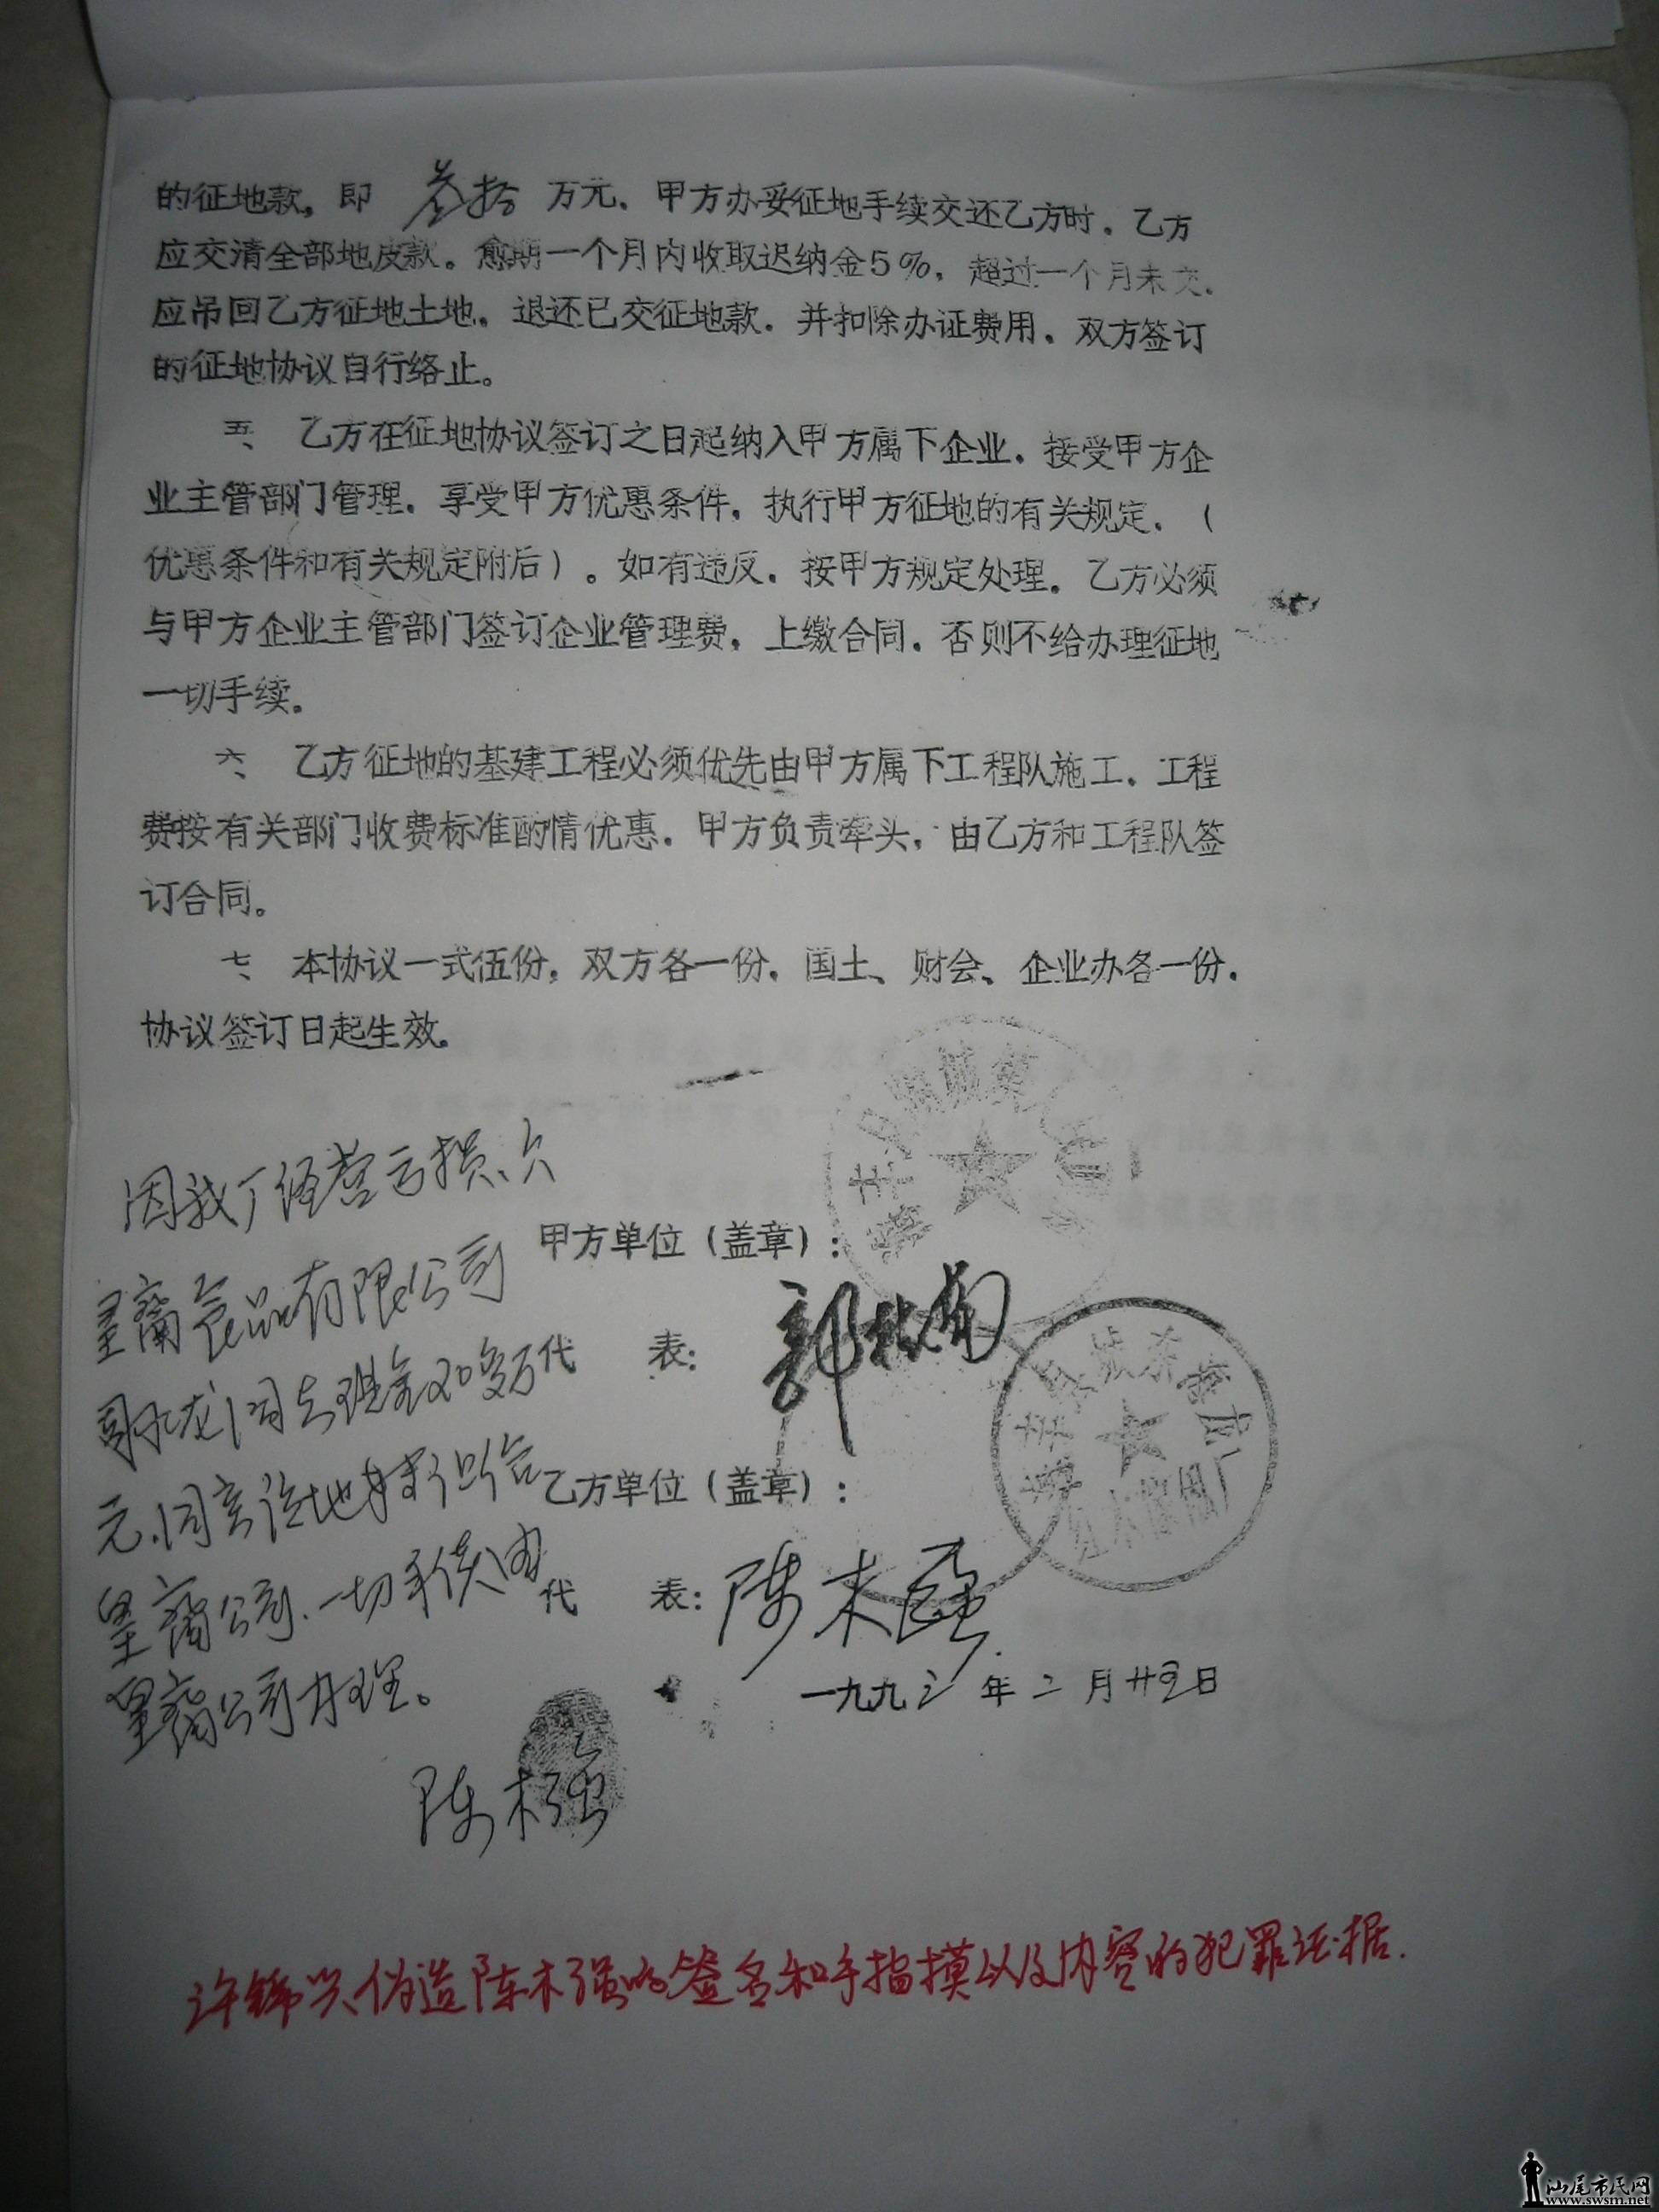 的征地款。即 叁拾 万元。甲方办妥征地手续交还乙方时。乙方
应交清全部地皮款。愈期一个月内收取迟纳金5%，超过一个月未交。
应吊回乙方征地土地。退还已交征地款。并扣除办证费用。双方签订
的征地协议自行络止。
五、 乙方在征地协议签订之日起纳入甲方属下企业。接受甲方企
业主管部门管理。享受甲方优惠条件。执行甲方征地的有关规定。（
优惠条件和有关规定附后）。如有违反。按甲方规定处理。乙方必须
与甲方企业主管部门签订企业管理费，上缴合同。否则不给办理征地
一切手续。
六、 乙方征地的基建工程必须优先由甲方属下工程队施工。工程
费按有关部门收费标准酌情优惠。甲方负责牵头，由乙方和工程队签
订合同。
七、 本协议一式伍份，双方各一份。国土、财会、企业办各一份。
协议签订日起生效。
因我厂经营亏损、欠
食品有限公司
甲方单位（盖章）：
代 表：
元、同意
乙方单位（盖章）：
公司、一切手续由
代 表：陈木强
公司办理。
一九九三年二月廿五日
陈木强
许锦兴伪造陈木强的签名和手指摸以及内容的犯罪证据.
汕尾市民网
www.swsm.net